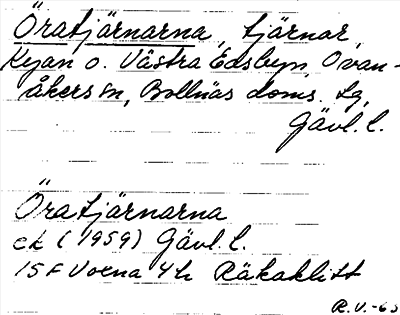 Öratjärnarna, tjärnar,
Ryan o. Västra Edsbyn, Ovan-
åkers sn, Bollnäs doms. Lg,
Gävl. l.
Öratjärnarna
ek (1959) Gävl. l.
15F Voxna 4h Räkaklitt
R.V.-63